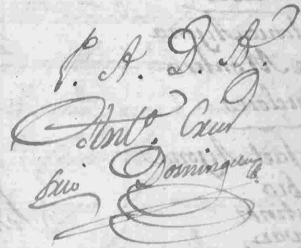 P. A. D. A.
Ant.º Cruz
Srio Dominguez